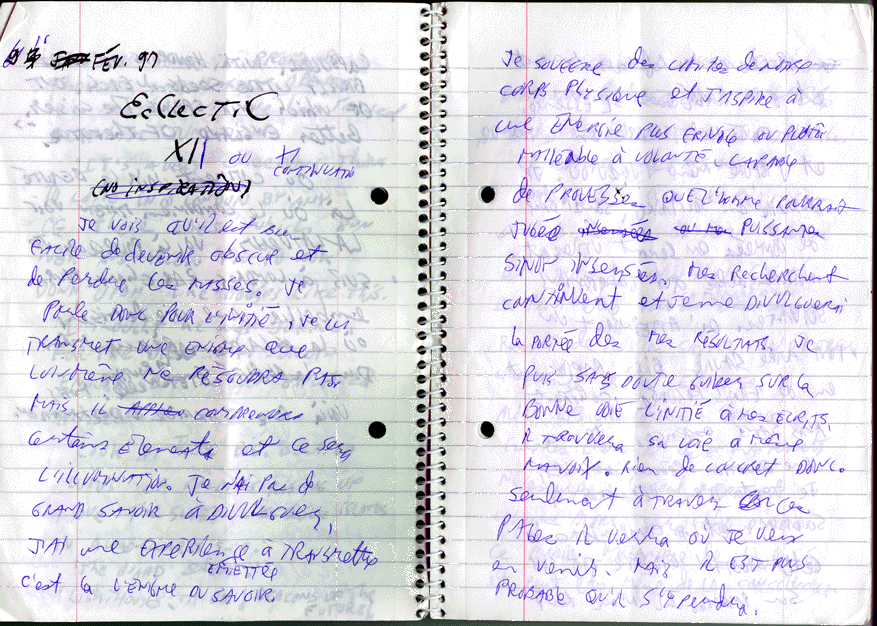 FÉV. 97
EcLLecTiC
XII ou XI
CONTINUATION
(NO INSPIRATION)
Je vois qu'il est
FACILE de devenir obscur et
de Perdre les MASSES. Je
Parle DONC POUR L'INITIÉ, Je lui
TRANSMET une ENIGME que
LUI MÊME Ne RÉSOUDRA PAS.
MAIS il comprendra
Certains Elements et ce sera
L'ILLUMINATION. Je N'AI PAS de
GRAND SAVOIR à DIVULGUER,
J'AI une EXPERIENCE à TRANSMETTRE
C'est la L'ENIGME DU SAVOIR.
Je SOUFFRE des LIMITES de NOTRE
CORPS PHYSIQUE et J'ASPIRE à
une ENERGIE PLUS ou PLUTÔT
MALLÉABLE à VOLONTÉ. CAPABLE
de PROUESSES QUE L'HOMME POURRAIT
JUGÉE INSENSÉES ou PUISSANTE
SINON INSENSÉS. Mes Recherchent
CONTINUENT et Je me DIVULGUERAI
la PORTÉE des Mes RÉSULTATS. Je
PUIS SANS DOUTE GUIDER SUR la
BONNE VOIE L'INITIÉ à Mes ÉCRITS.
il TROUVERA sa VOIE à Même
MA VOIX. Rien de concret DONC.
Seulement à TRAVERS Ces
PAGES il verra où Je veux
en venir. MAIS il EST PLUS
PROBABLE QU'il S'y perdra.